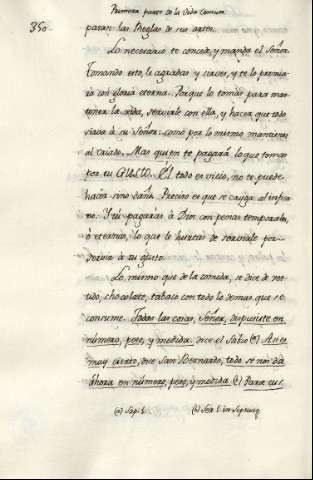 Primera parte de la Vida Comun.
350.
pasan las Reglas de sus artes.
Lo necesario te concede, y manda el Señor
Tomando esto, le agradas y sirves, y te lo premia-
rá con gloria eterna. Porque lo tomas para man-
tener la vida, servirle con ella, y hacer que todo
sirva à su Señor. como por lo mismo mantienes
al criado. Mas quien te pagará lo que tomas
por tu El todo es vicio, no te puede
hacer sino daño. Preciso es que se caiga al infier-
no. Y tú pagarás à Dios con penas temporales,
ò eternas, lo que le hurtas de servirle por
servir à tu gusto.
Lo mismo que de la comida, se dice de ves-
tido, chocolate, tabaco con todo lo demas que se
consume. Todas las cosas, Señor, dispusiste en
número, peso, y medida. dice el Sabio (a) Asies
muy cierto, dice San Bernardo, todo se nos dà
ahora en número, peso, y medida (b) Para tus
(a) Sap. (b) Ser. in